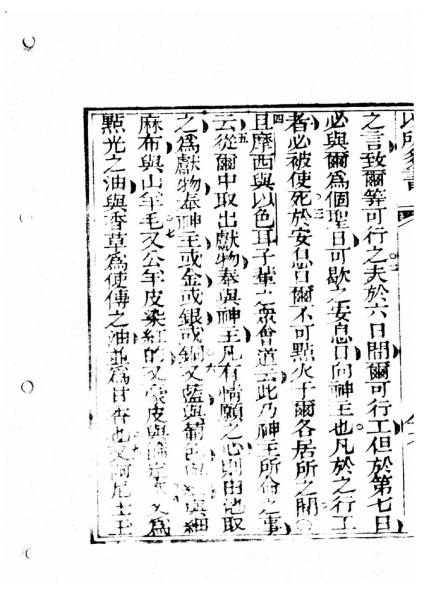 之言致爾等可行之夫於六日間爾可行工但於第七日
必與爾爲個聖日可歇之安息日向神主也凡於之行工
者必被使死於安息日爾不可點火于爾各居所之間○
四且摩西與以色耳子輩之眾會道云此乃神主所命之事
五云從爾中取出獻物奉與神主凡有情願之心則由他取
之爲獻物奉神主或金或銀或銅六又藍與紫色與紅與細
麻布與山羊毛七又公羊皮染紅的又皮與木八又爲
點光之油與香草爲使傅之油並爲甘香也九又阿尼士玉